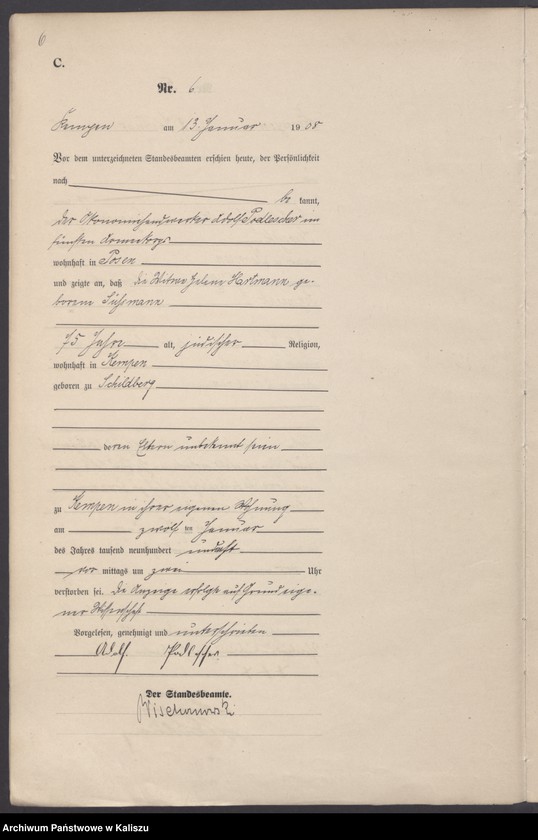 6
C.
Nr. 6
Kempen am 13. Januar 1908
Vor dem unterzeichneten Standesbeamten erschien heute, der Persönlichkeit
nach
be kannt,
der Ökonomiehandwerker Adolf Podlescher im
fünften Armeekorps
wohnhaft in Posen
und zeigte an, daß die Witwe Helene Hartmann ge-
borene
75 Jahre alt, jüdischer Religion,
wohnhaft in Kempen
geboren zu Schildberg
deren Eltern unbekannt seien
zu Kempen in ihrer eigenen Wohnung
am zwölf ten Januar
des Jahres tausend neunhundert undacht
vor mittags um zwei Uhr
verstorben sei. Die Anzeige erfolgte auf Grund eige-
ner Wissenschaft
Vorgelesen, genehmigt und unterschrieben
Adolf Podlescher
Der Standesbeamte.
Archiwum Państwowe w Kaliszu